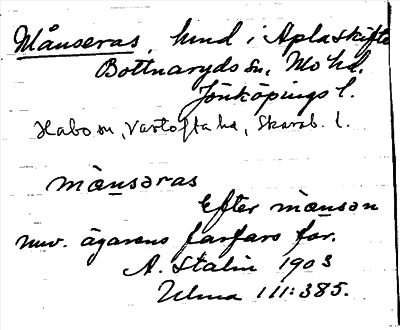 Månseras, hmd i Aplaskifte
Bottnaryds sn, Mo hd.
Jönköpings l.
Habo sn, Vartofta hd, Skarab. l.
mænsəras
Efter mænsən
nuv. ägarens farfars far.
A. Stalin 1903
Ulma 111:385.